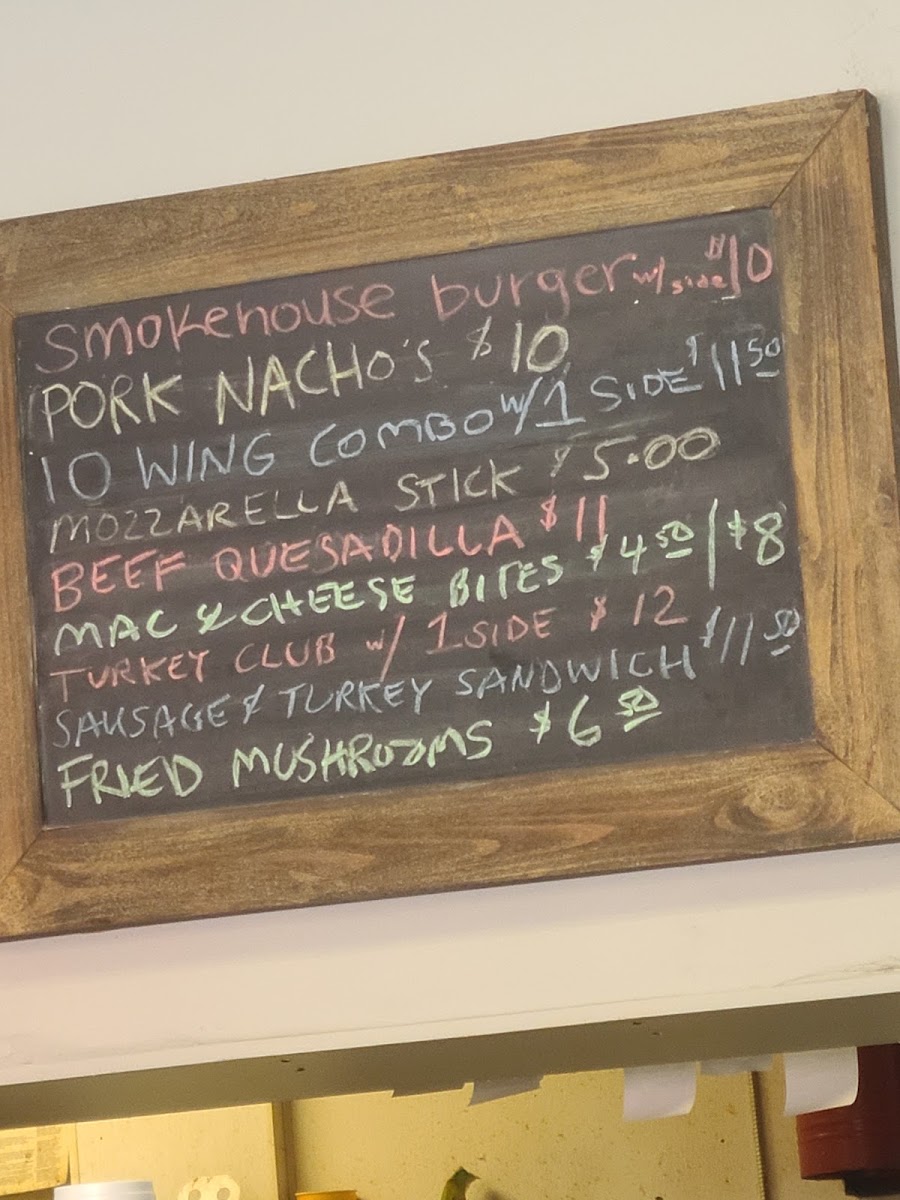 Smokehouse burger w/ side $10
PORK NACHO'S $10
10 WING COMBO w/ 1 SIDE $11 50
MOZZARELLA STICK $5.00
BEEF QUESADILLA $11
MAC & CHEESE BITES $4 50 | $8
TURKEY CLUB w/ 1 SIDE $12
SAUSAGE & TURKEY SANDWICH $11 50
FRIED MUSHROOMS $6 50